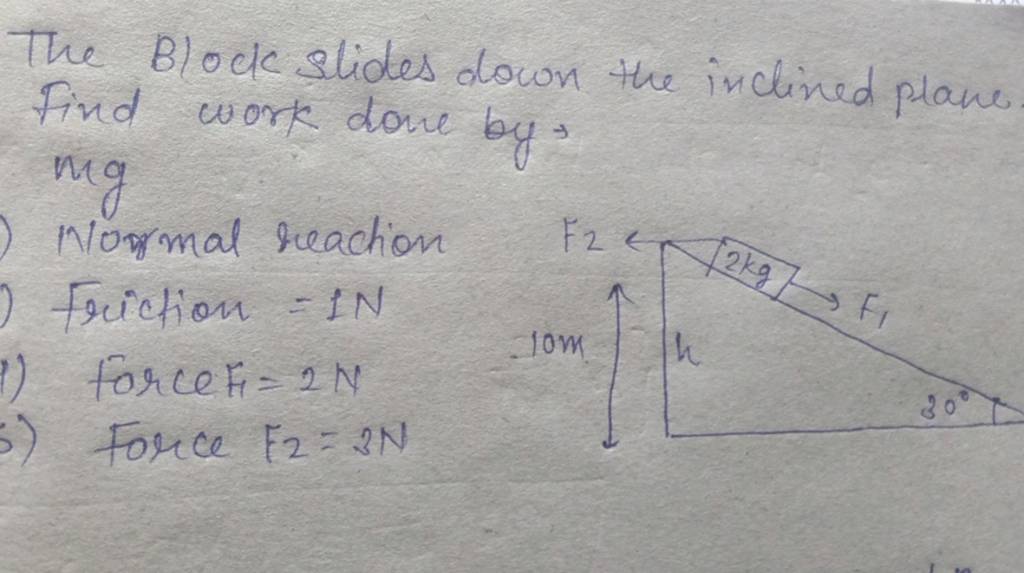 The Block slides down the inclined plane.
Find work done by →
mg
) Normal reaction
) Friction = 1N
) Force F1 = 2N
5) Force F2 = 3N
F2
2kg
F1
10m
h
30°